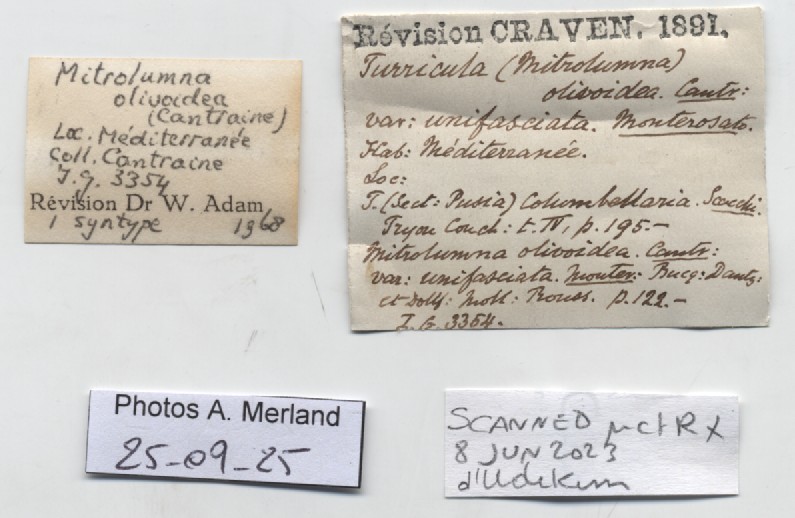 Mitrolumna
olivoidea
(Cantraine)
Loc. Méditerranée
Coll. Cantraine
I.g. 3354
Révision Dr W. Adam
1 syntype 1968
Révision CRAVEN. 1891.
Turricula (Mitrolumna)
olivoidea. Cantr:
var: unifasciata. Monterosato.
Hab: Méditerranée.
Loc:
T. (Sect: Pusia) Columbellaria. Scacchi.
Tryon Conch: t. IV, p. 195.-
Mitrolumna olivoidea. Cantr:
var: unifasciata. Monter: Bucq: Dautz:
et Dollf: Moll: Rouss. p. 122.-
I. G. 3354.
Photos A. Merland
25-09-25
SCANNED µctRX
8 JUN 2023
d'Udekem